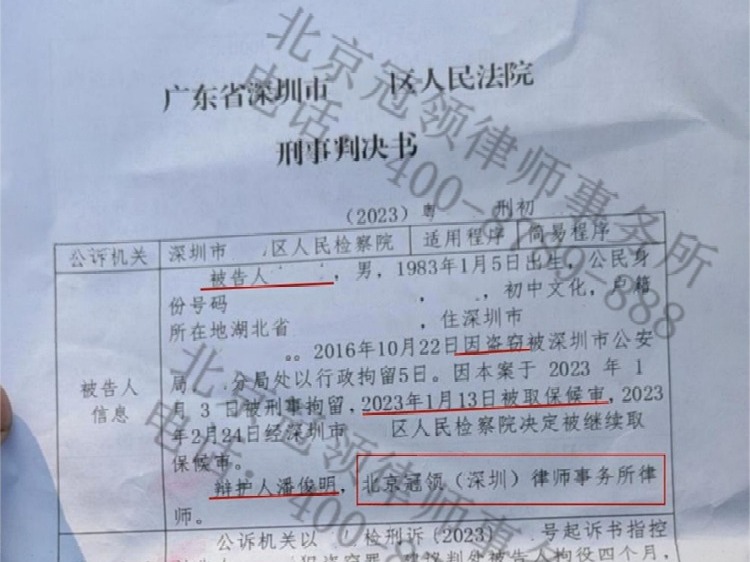 广东省深圳市 区人民法院
刑事判决书
(2023)粤 刑初
公诉机关 深圳市 区人民检察院 适用程序 简易程序
被告人 ,男,1983年1月5日出生,公民身
份号码 , 初中文化,户籍
所在地湖北省 ,住深圳市
。。2016年10月22日因盗窃被深圳市公安
局 分局处以行政拘留5日。因本案于 2023 年 1
被告人
信息
月 3 日被刑事拘留,2023年1月13日被取保候审,2023
年2月24日经深圳市 区人民检察院决定被继续取
保候审。
辩护人潘俊明,北京冠领(深圳)律师事务所律
师。
公诉机关以 检刑诉(2023) 号起诉书指控
盗窃罪,建议判处被告人拘役四个月,
北京冠领律师事务所
电话:400-8789-888
北京冠领律师事务所
电话:400-8